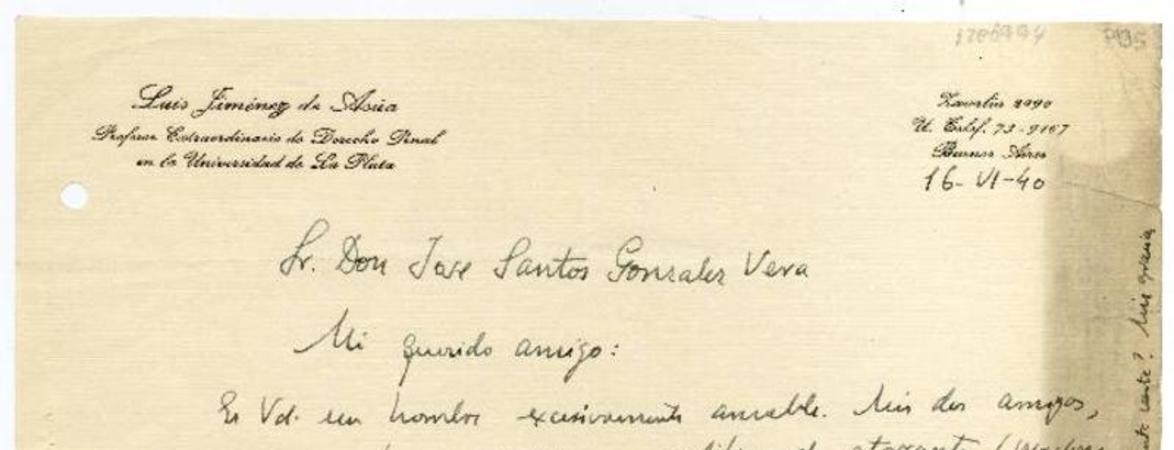 Luis Jiménez de Asúa
Profesor Extraordinario de Derecho Penal
en la Universidad de La Plata
Zavalía 2090
U. Telef. 73-9167
Buenos Aires
16-VI-40
Sr. Don José Santos Gonzalez Vera
Mi querido amigo:
Es Vd. un hombre excesivamente amable. Mis dos amigos,